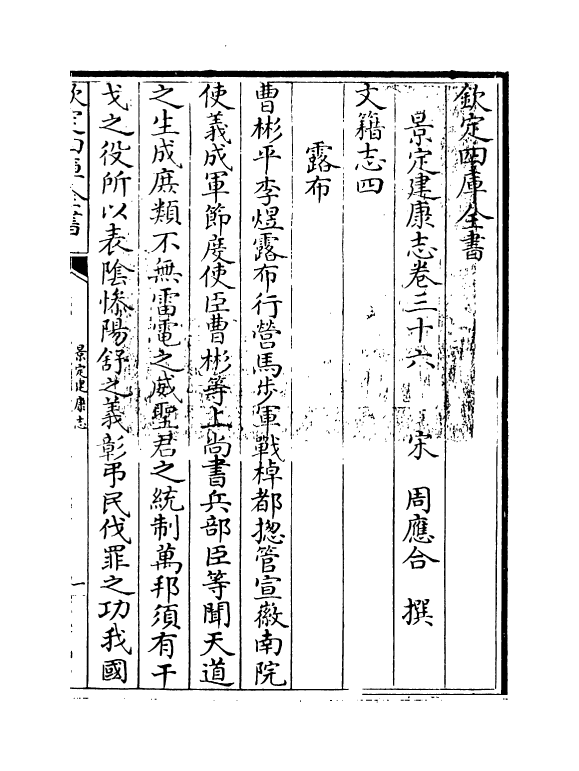 欽定四庫全書
景定建康志卷三十六 宋 周應合 撰
文籍志四
露布
曹彬平李煜露布行營馬步軍戰棹都揔管宣徽南院
使義成軍節度使臣曹彬等上尚書兵部臣等聞天道
之生成庶類不無雷電之威聖君之統制萬邦須有干
戈之役所以表陰慘陽舒之義彰弔民伐罪之功我國
欽定四庫全書
景定建康志
一